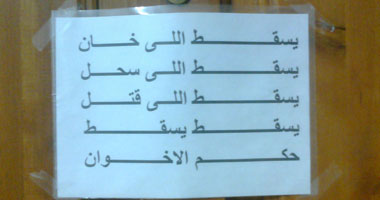 يسقط اللى خان
يسقط اللى سحل
يسقط اللى قتل
يسقط يسقط
حكم الاخوان